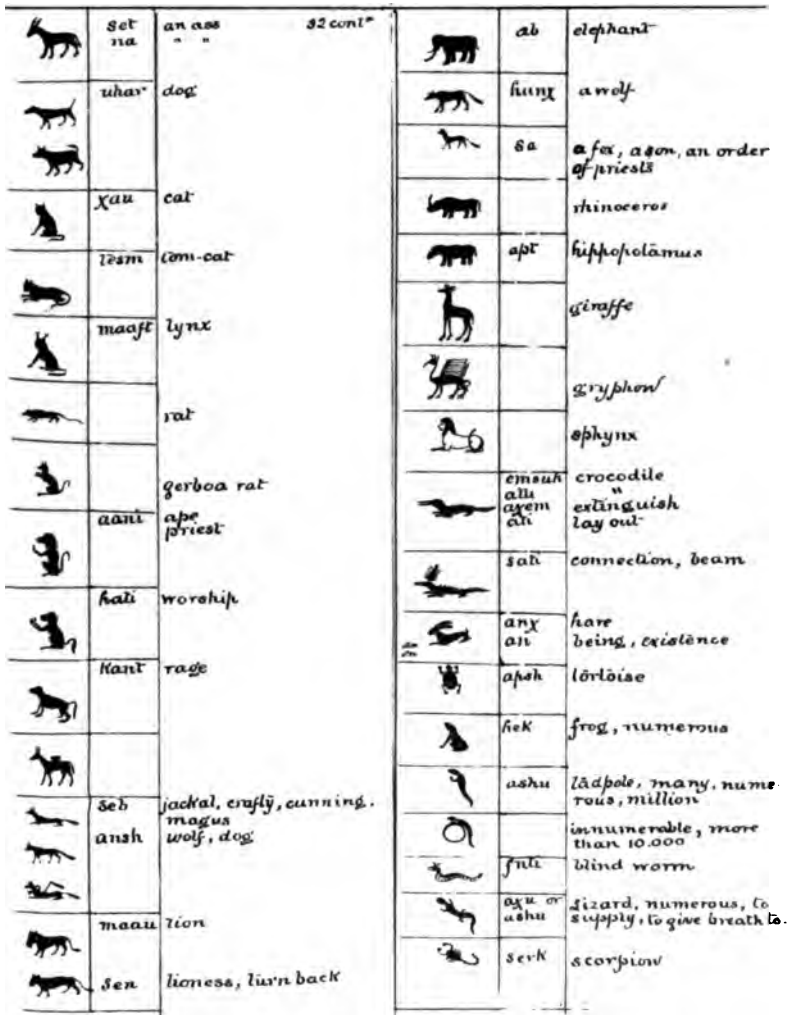 set an ass 32 cont^n
na " "
uhar dog
χau cat
tesm tom-cat
maaft lynx
rat
gerboa rat
aani ape
priest
hati worship
Kant rage
seb jackal, crafty, cunning.
magus
ansh wolf, dog
maau lion
sen lioness, turn back
ab elephant
hunχ a wolf
sa a fox, a son, an order
of priests
rhinoceros
apt hippopotamus
giraffe
gryphon
sphynx
emsuh crocodile
"
aχem extinguish
ati lay out
sati connection, beam
anχ hare
an being, existence
apsh tortoise
hek frog, numerous
ashu tadpole, many, nume
rous, million
innumerable, more
than 10.000
fnti blind worm
aχu or Lizard, numerous, to
ashu supply, to give breath to.
serk scorpion